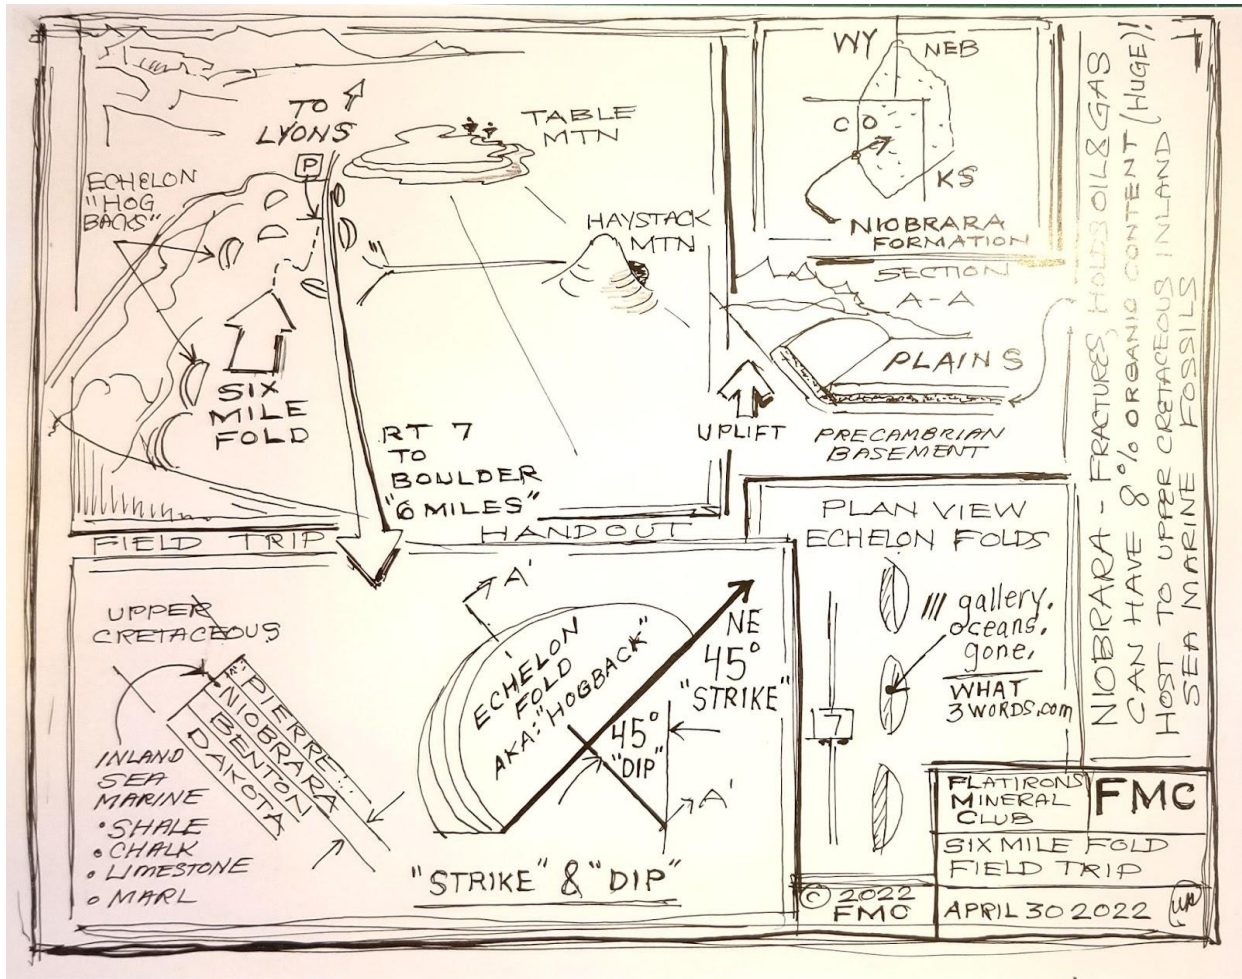 TO
LYONS
P
TABLE
MTN
ECHELON
"HOG
BACKS"
HAYSTACK
MTN
SIX
MILE
FOLD
RT 7
TO
BOULDER
"6 MILES"
WY
NEB
CO
KS
NIOBRARA
FORMATION
SECTION
A-A
PLAINS
UPLIFT
PRECAMBRIAN
BASEMENT
NIOBRARA - FRACTURES, HOLDS OIL & GAS
CAN HAVE 8% ORGANIC CONTENT (HUGE)!
HOST TO UPPER CRETACEOUS INLAND
SEA MARINE FOSSILS
FIELD TRIP
HANDOUT
UPPER
CRETACEOUS
PIERRE
NIOBRARA
BENTON
DAKOTA
INLAND
SEA
MARINE
• SHALE
• CHALK
• LIMESTONE
• MARL
A'
ECHELON
FOLD
AKA: "HOGBACK"
NE
45°
"STRIKE"
45°
"DIP"
A'
"STRIKE" & "DIP"
PLAN VIEW
ECHELON FOLDS
/// gallery.
oceans.
gone.
WHAT
3WORDS.com
7
© 2022
FMC
FLATIRONS
MINERAL
CLUB
FMC
SIX MILE FOLD
FIELD TRIP
APRIL 30 2022